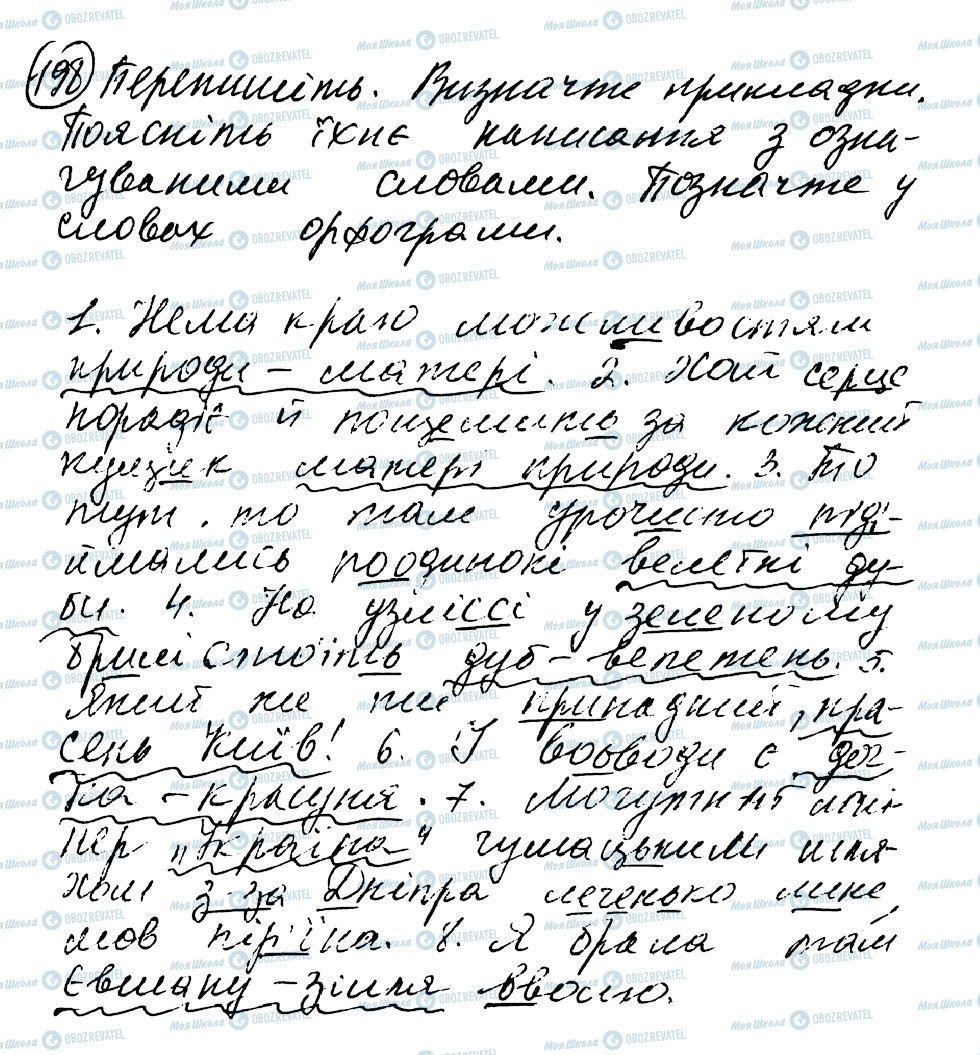 198 Перепишіть. Визначте прикладки.
Поясніть їхнє написання з озна-
чуваними словами. Позначте у
словах орфограми.
1. Нема краю можливостям
природи - матері. 2. Хай серце
порадіє й пощемить за кожний
кущик матері природи. 3. То
тут, то там урочисто піді-
ймались поодинокі велетні ду-
би. 4. На узліссі у зеленому
брилі стоїть дуб - велетень. 5.
Який же ти принадний, кра-
сень Київ! 6. І воєводи є доч-
ка - красуня. 7. Могутній лай-
нер "Україна" чумацьким шля-
хом з-за Дніпра легенько лине,
мов пір'їна. 8. Я брала там
Євшану - зілля вволю.